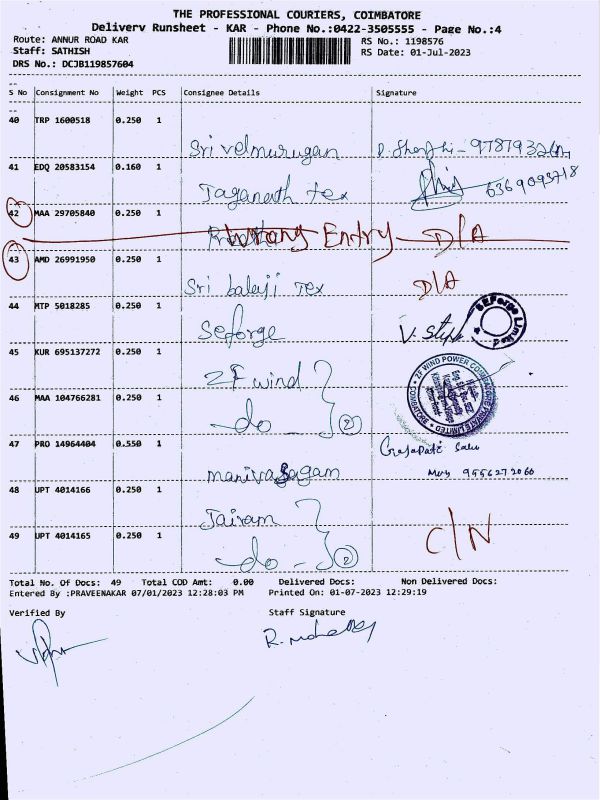 THE PROFESSIONAL COURIERS, COIMBATORE
Delivery Runsheet - KAR - Phone No.:0422-3505555 - Page No.:4
Route: ANNUR ROAD KAR
RS No.: 1198576
Staff: SATHISH
RS Date: 01-Jul-2023
DRS No.: DCJB119857604
S No Consignment No Weight PCS Consignee Details Signature
40 TRP 1600518 0.250 1
Sri velmurugan
41 EDQ 20583154 0.160 1
Jaganath tex 6369093718
42 MAA 29705840 0.250 1
Wrong Entry D/A
43 AMD 26991950 0.250 1
Sri balaji Tex D/A
44 MTP 5018285 0.250 1
Seforge
45 KUR 695137272 0.250 1
ZF wind
46 MAA 104766281 0.250 1
do - 2
ZF WIND POWER COIMBATORE PRIVATE LIMITED
COIMBATORE
47 PRO 14964404 0.550 1
manivasagam 9556272066
48 UPT 4014166 0.250 1
Jairam
49 UPT 4014165 0.250 1
do - 2 C/N
Total No. Of Docs: 49 Total COD Amt: 0.00 Delivered Docs: Non Delivered Docs:
Entered By :PRAVEENAKAR 07/01/2023 12:28:03 PM Printed On: 01-07-2023 12:29:19
Verified By Staff Signature